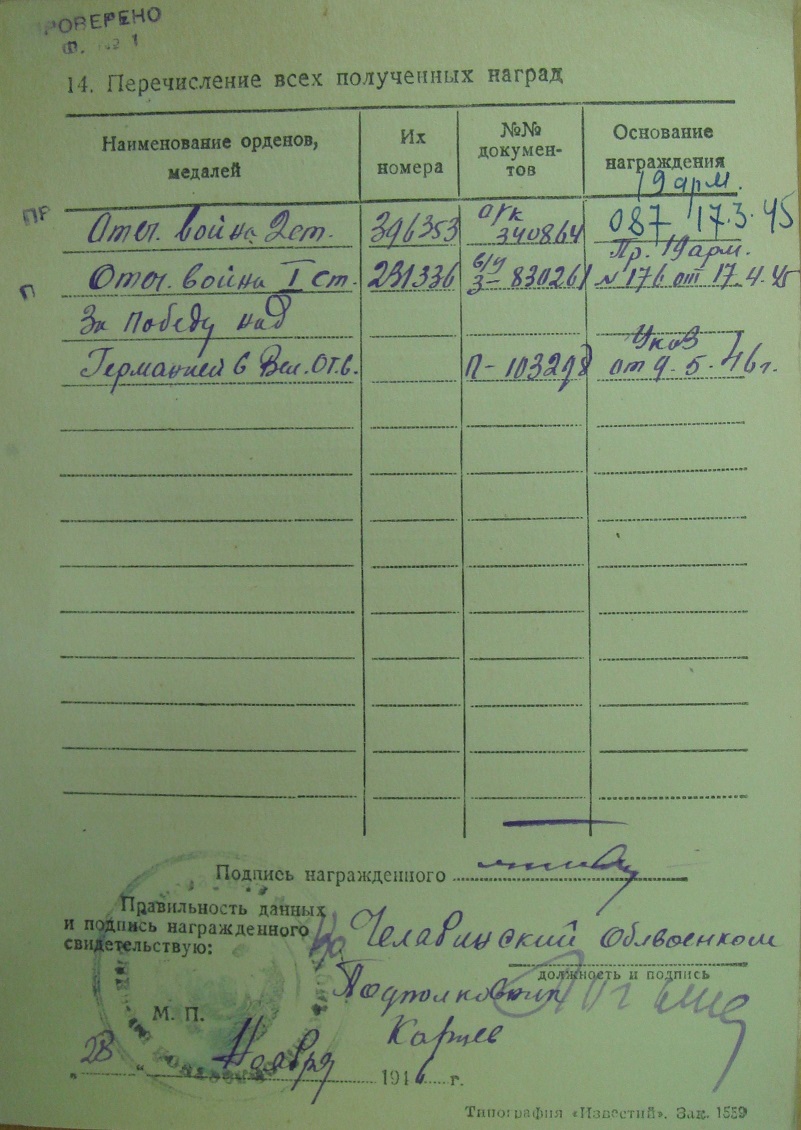 РОВЕРЕНО
14. Перечисление всех полученных наград
Наименование орденов, медалей
Их номера
№№ докумен-тов
Основание награждения
19 арм.
ПР
Отеч. война 2 ст. 396353 о/к 340864 087 17.3.45
П
Отеч. война I ст. 231336 З-830261 Пр. 19 арм. №176 от 17.4.45
За Победу над
Германией в Вел. От. в. П-103298 Указ от 9.5.46 г.
Подпись награжденного
Правильность данных
и подпись награжденного
свидетельствую:
Челябинский Облвоенком
должность и подпись
Подполковник
М. П.
Карцев
"28" Ноября 1946 г.
Типография «Известий». Зак. 1559